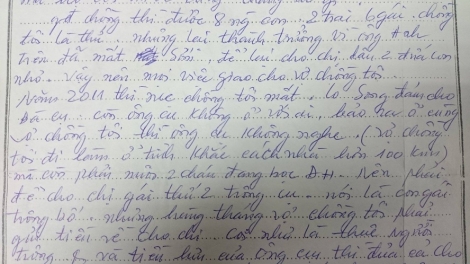 gót chồng thì được 8 ng con, 2 trai 6 gái, chồng
tôi là thứ nhưng lại thành trưởng vì ông Anh
trên đã mất sớm, để lại cho chị dâu 2 đứa con
nhỏ. Vậy nên mọi việc giao cho vợ chồng tôi.
Năm 2011 thì mẹ chồng tôi mất, lo song đám cho
bà cụ. còn ông cụ không ở với ai, bảo ra ở cùng
vợ chồng tôi thì ông cụ không nghe. (vợ chồng
tôi đi làm ở tỉnh khác cách nhà hơn 100 km)
mà còn phải nuôi 2 cháu đang học ĐH. Nên phải
để cho chị gái thứ 2 trông cụ. nói là con gái
trông bố, nhưng hàng tháng vợ chồng tôi phải
gửi tiền về cho chị coi như là thuê người
trông, và tiền của ông cụ thì đưa cả cho